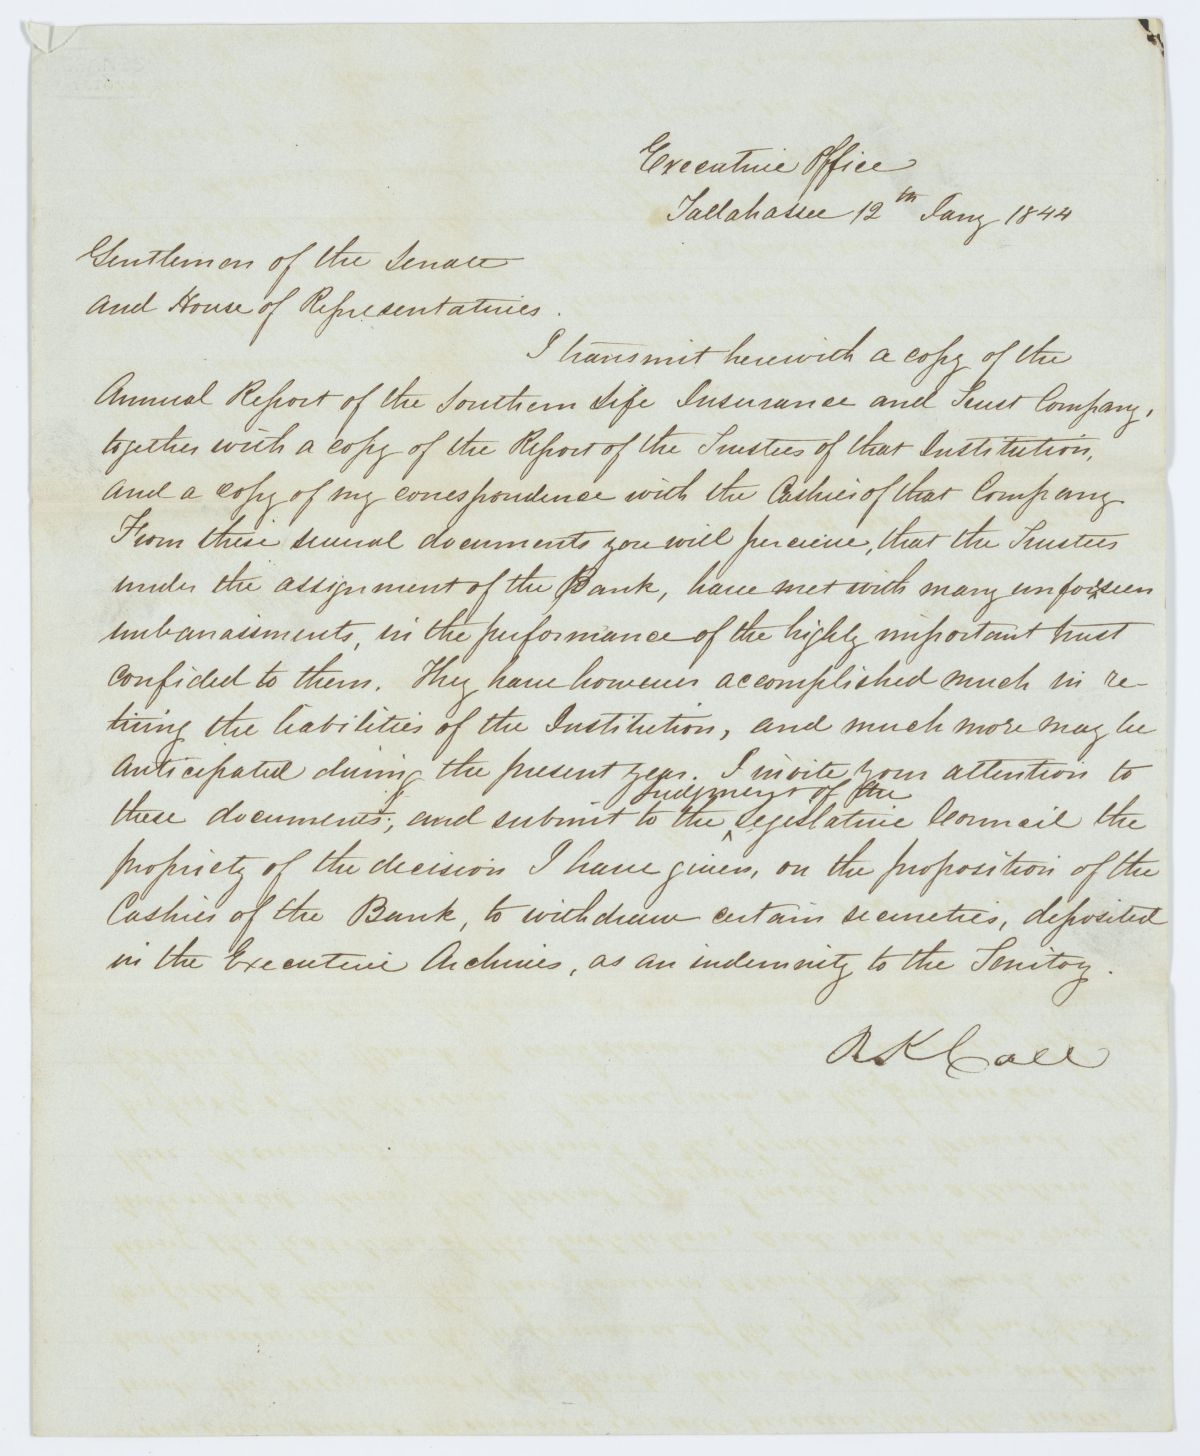 Executive Office
Tallahassee 12th Jany 1844
Gentlemen of the Senate
and House of Representatives.
I transmit herewith a copy of the
Annual Report of the Southern Life Insurance and Trust Company,
together with a copy of the Report of the Trustees of that Institution,
and a copy of my correspondence with the Cashier of that Company
From these several documents you will perceive, that the Trustees
under the assignment of the Bank, have met with many unforseen
embarrassments, in the performance of the highly important trust
confided to them. They have however accomplished much in re-
tiring the liabilities of the Institution, and much more may be
anticipated during the present year. I invite your attention to
judgment of the
these documents, and submit to the Legislative Council the
propriety of the decision I have given, on the proposition of the
Cashier of the Bank, to withdraw certain securities, deposited
in the Executive Archives, as an indemnity to the Territory.
R K Call